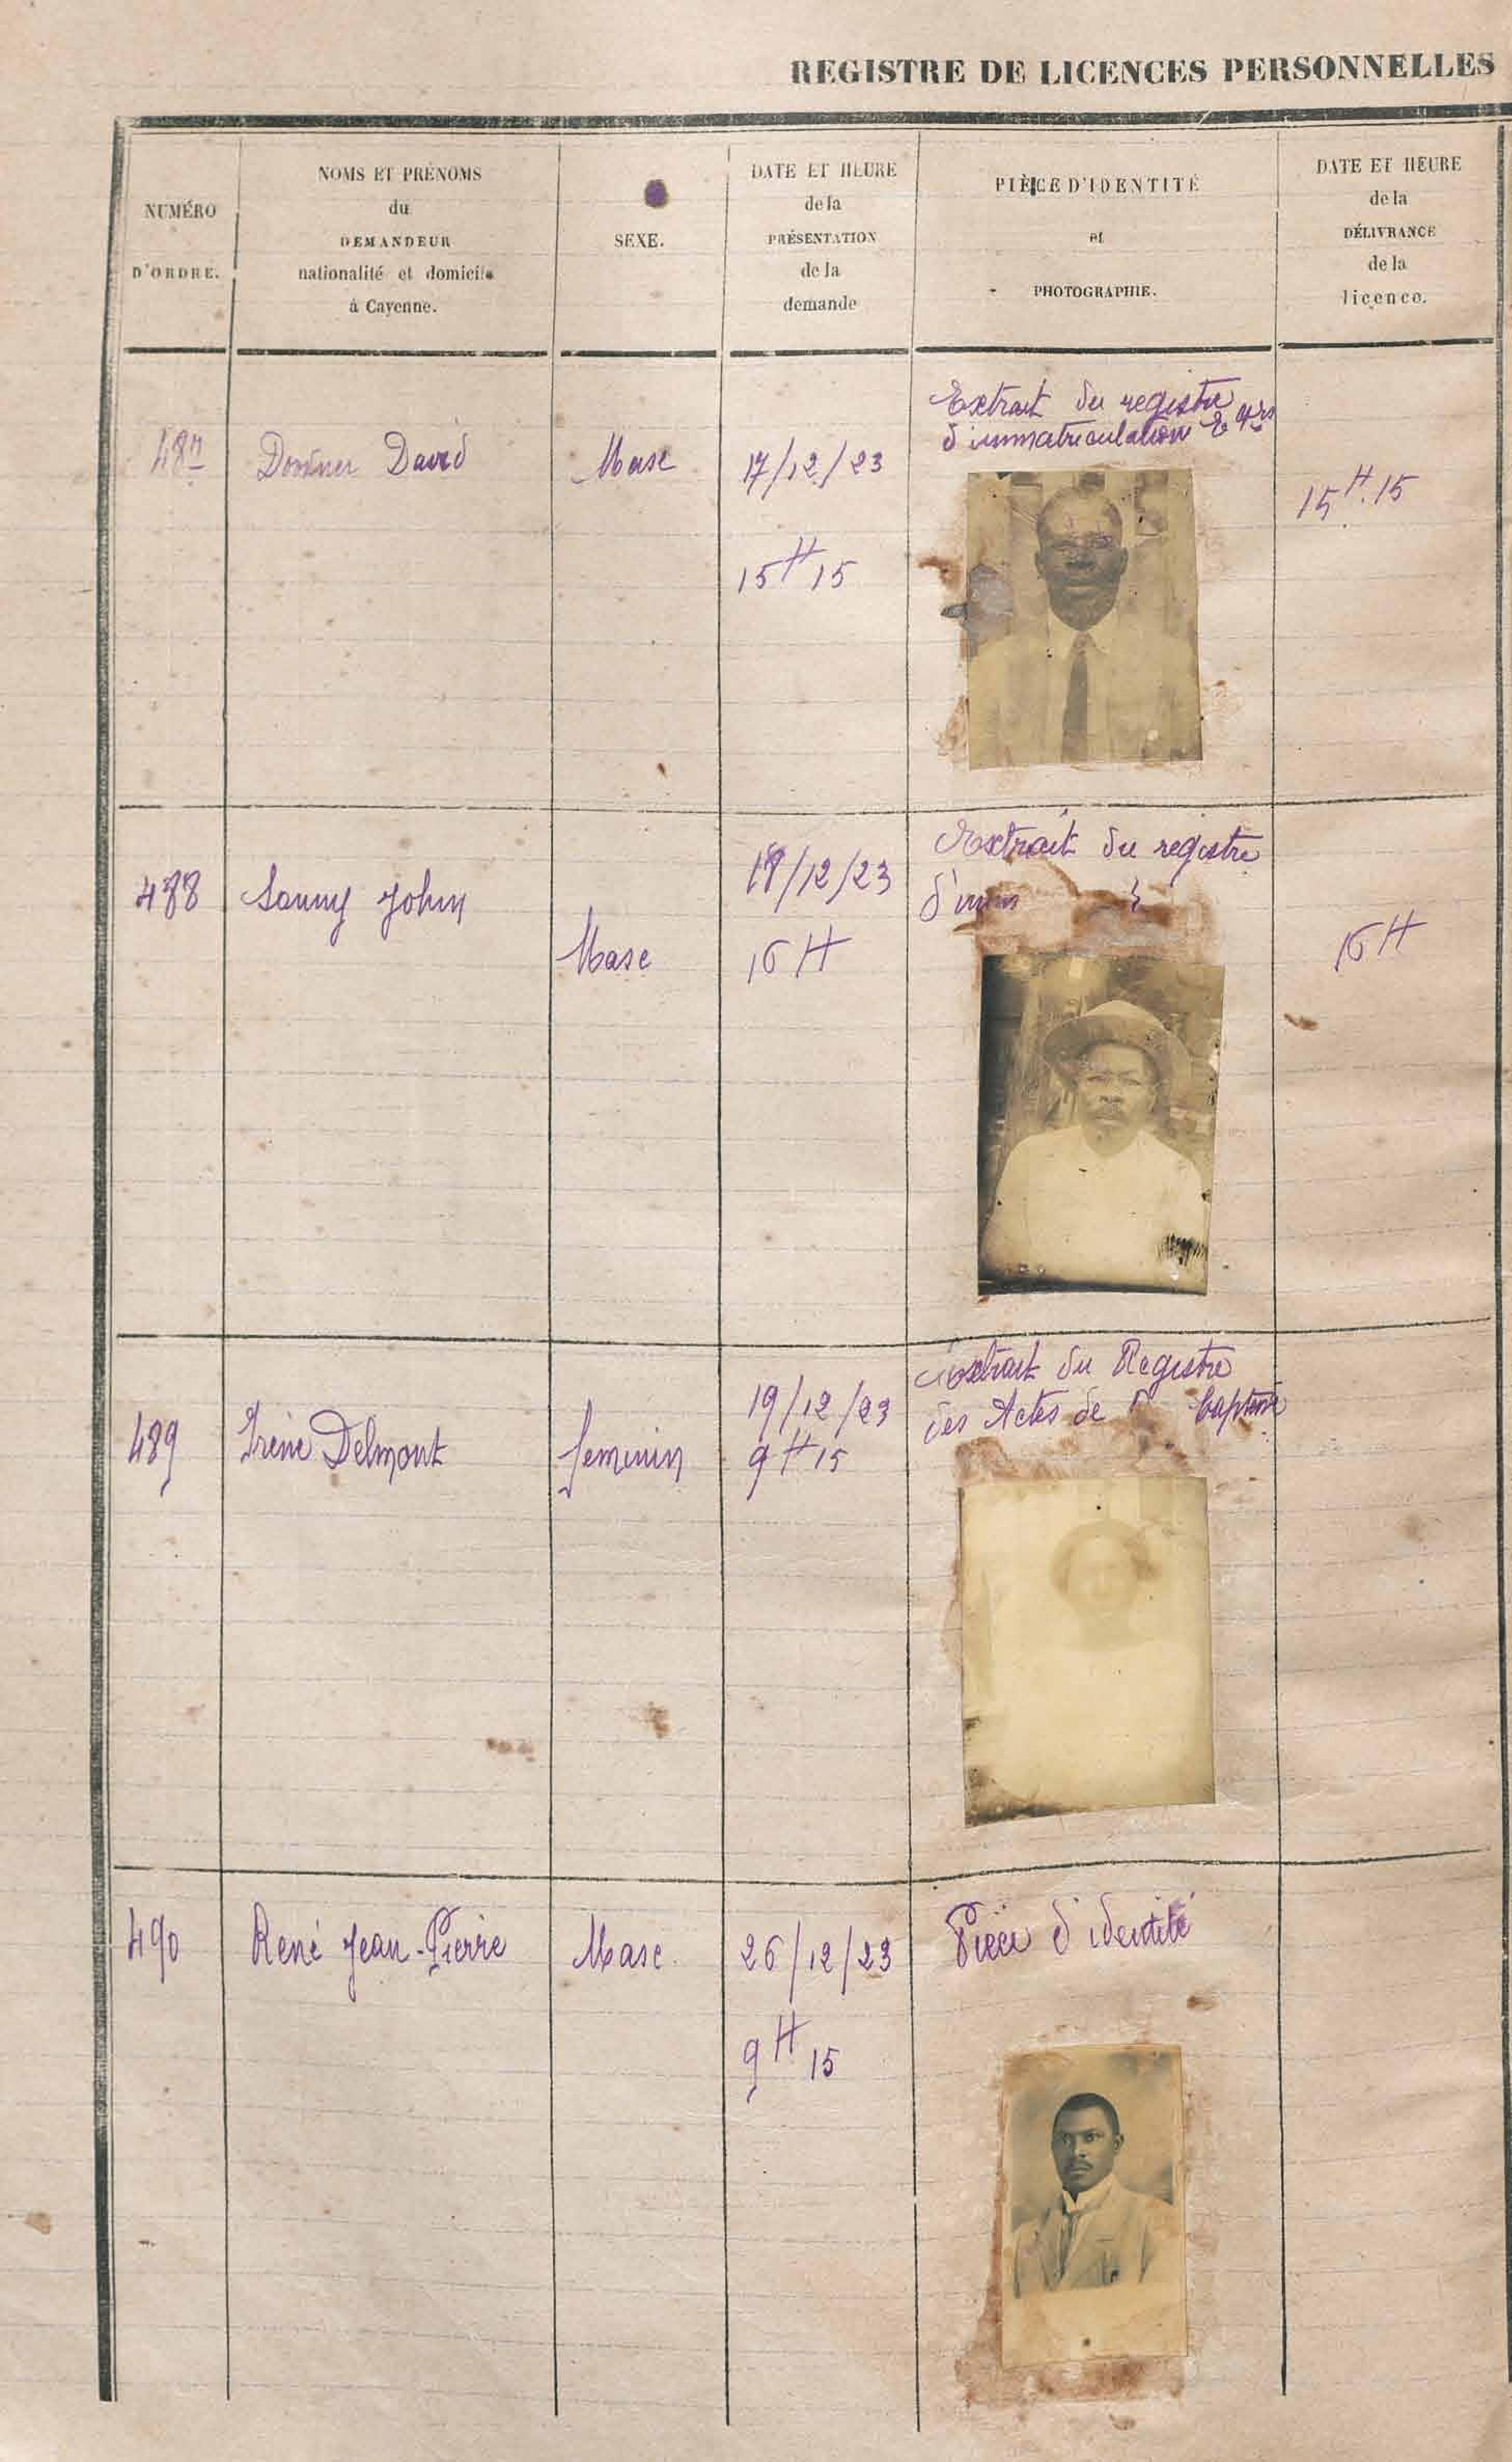 REGISTRE DE LICENCES PERSONNELLES
NUMÉRO
D'ORDRE.
NOMS ET PRÉNOMS
du
DEMANDEUR
nationalité et domicile
à Cayenne.
SEXE.
DATE ET HEURE
de la
PRÉSENTATION
de la
demande
PIÈCE D'IDENTITÉ
et
PHOTOGRAPHIE.
DATE ET HEURE
de la
DÉLIVRANCE
de la
licence.
487
David
Masc
17/12/23
15H15
Extrait du registre
d'immatriculation
15H.15
488
John
Masc
18/12/23
16H
Extrait du registre
d'imm
16H
489
Irène Delmont
feminin
19/12/23
9H15
Extrait du Registre
des Actes de
490
René Jean-Pierre
Masc.
26/12/23
9H15
Pièce d'identité